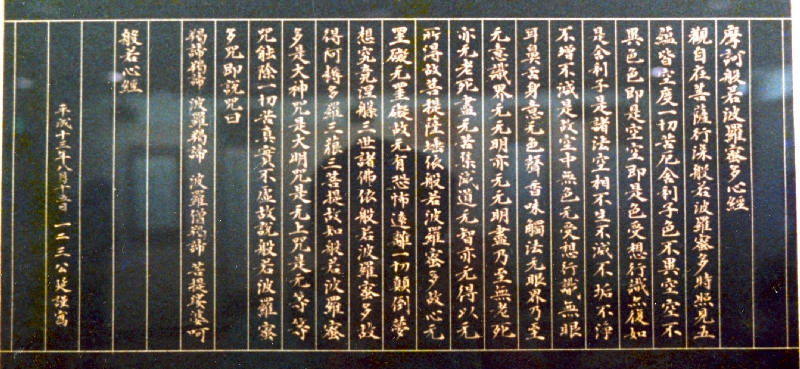 摩訶般若波羅蜜多心經
觀自在菩薩行深般若波羅蜜多時照見五
蘊皆空度一切苦厄舍利子色不異空空不
異色色即是空空即是色受想行識亦復如
是舍利子是諸法空相不生不滅不垢不淨
不增不減是故空中無色无受想行識無眼
耳鼻舌身意无色聲香味觸法无眼界乃至
无意識界无无明亦无无明盡乃至無老死
亦无老死盡无苦集滅道无智亦无得以无
所得故菩提薩埵依般若波羅蜜多故心无
罣礙无罣礙故无有恐怖遠離一切顛倒夢
想究竟涅槃三世諸佛依般若波羅蜜多故
得阿耨多羅三藐三菩提故知般若波羅蜜
多是大神咒是大明咒是无上咒是无等等
咒能除一切苦真實不虛故說般若波羅蜜
多咒即說咒曰
揭諦揭諦 波羅揭諦 波羅僧揭諦 菩提埵婆呵
般若心經
平成十三年八月十五日 一二三公延謹寫